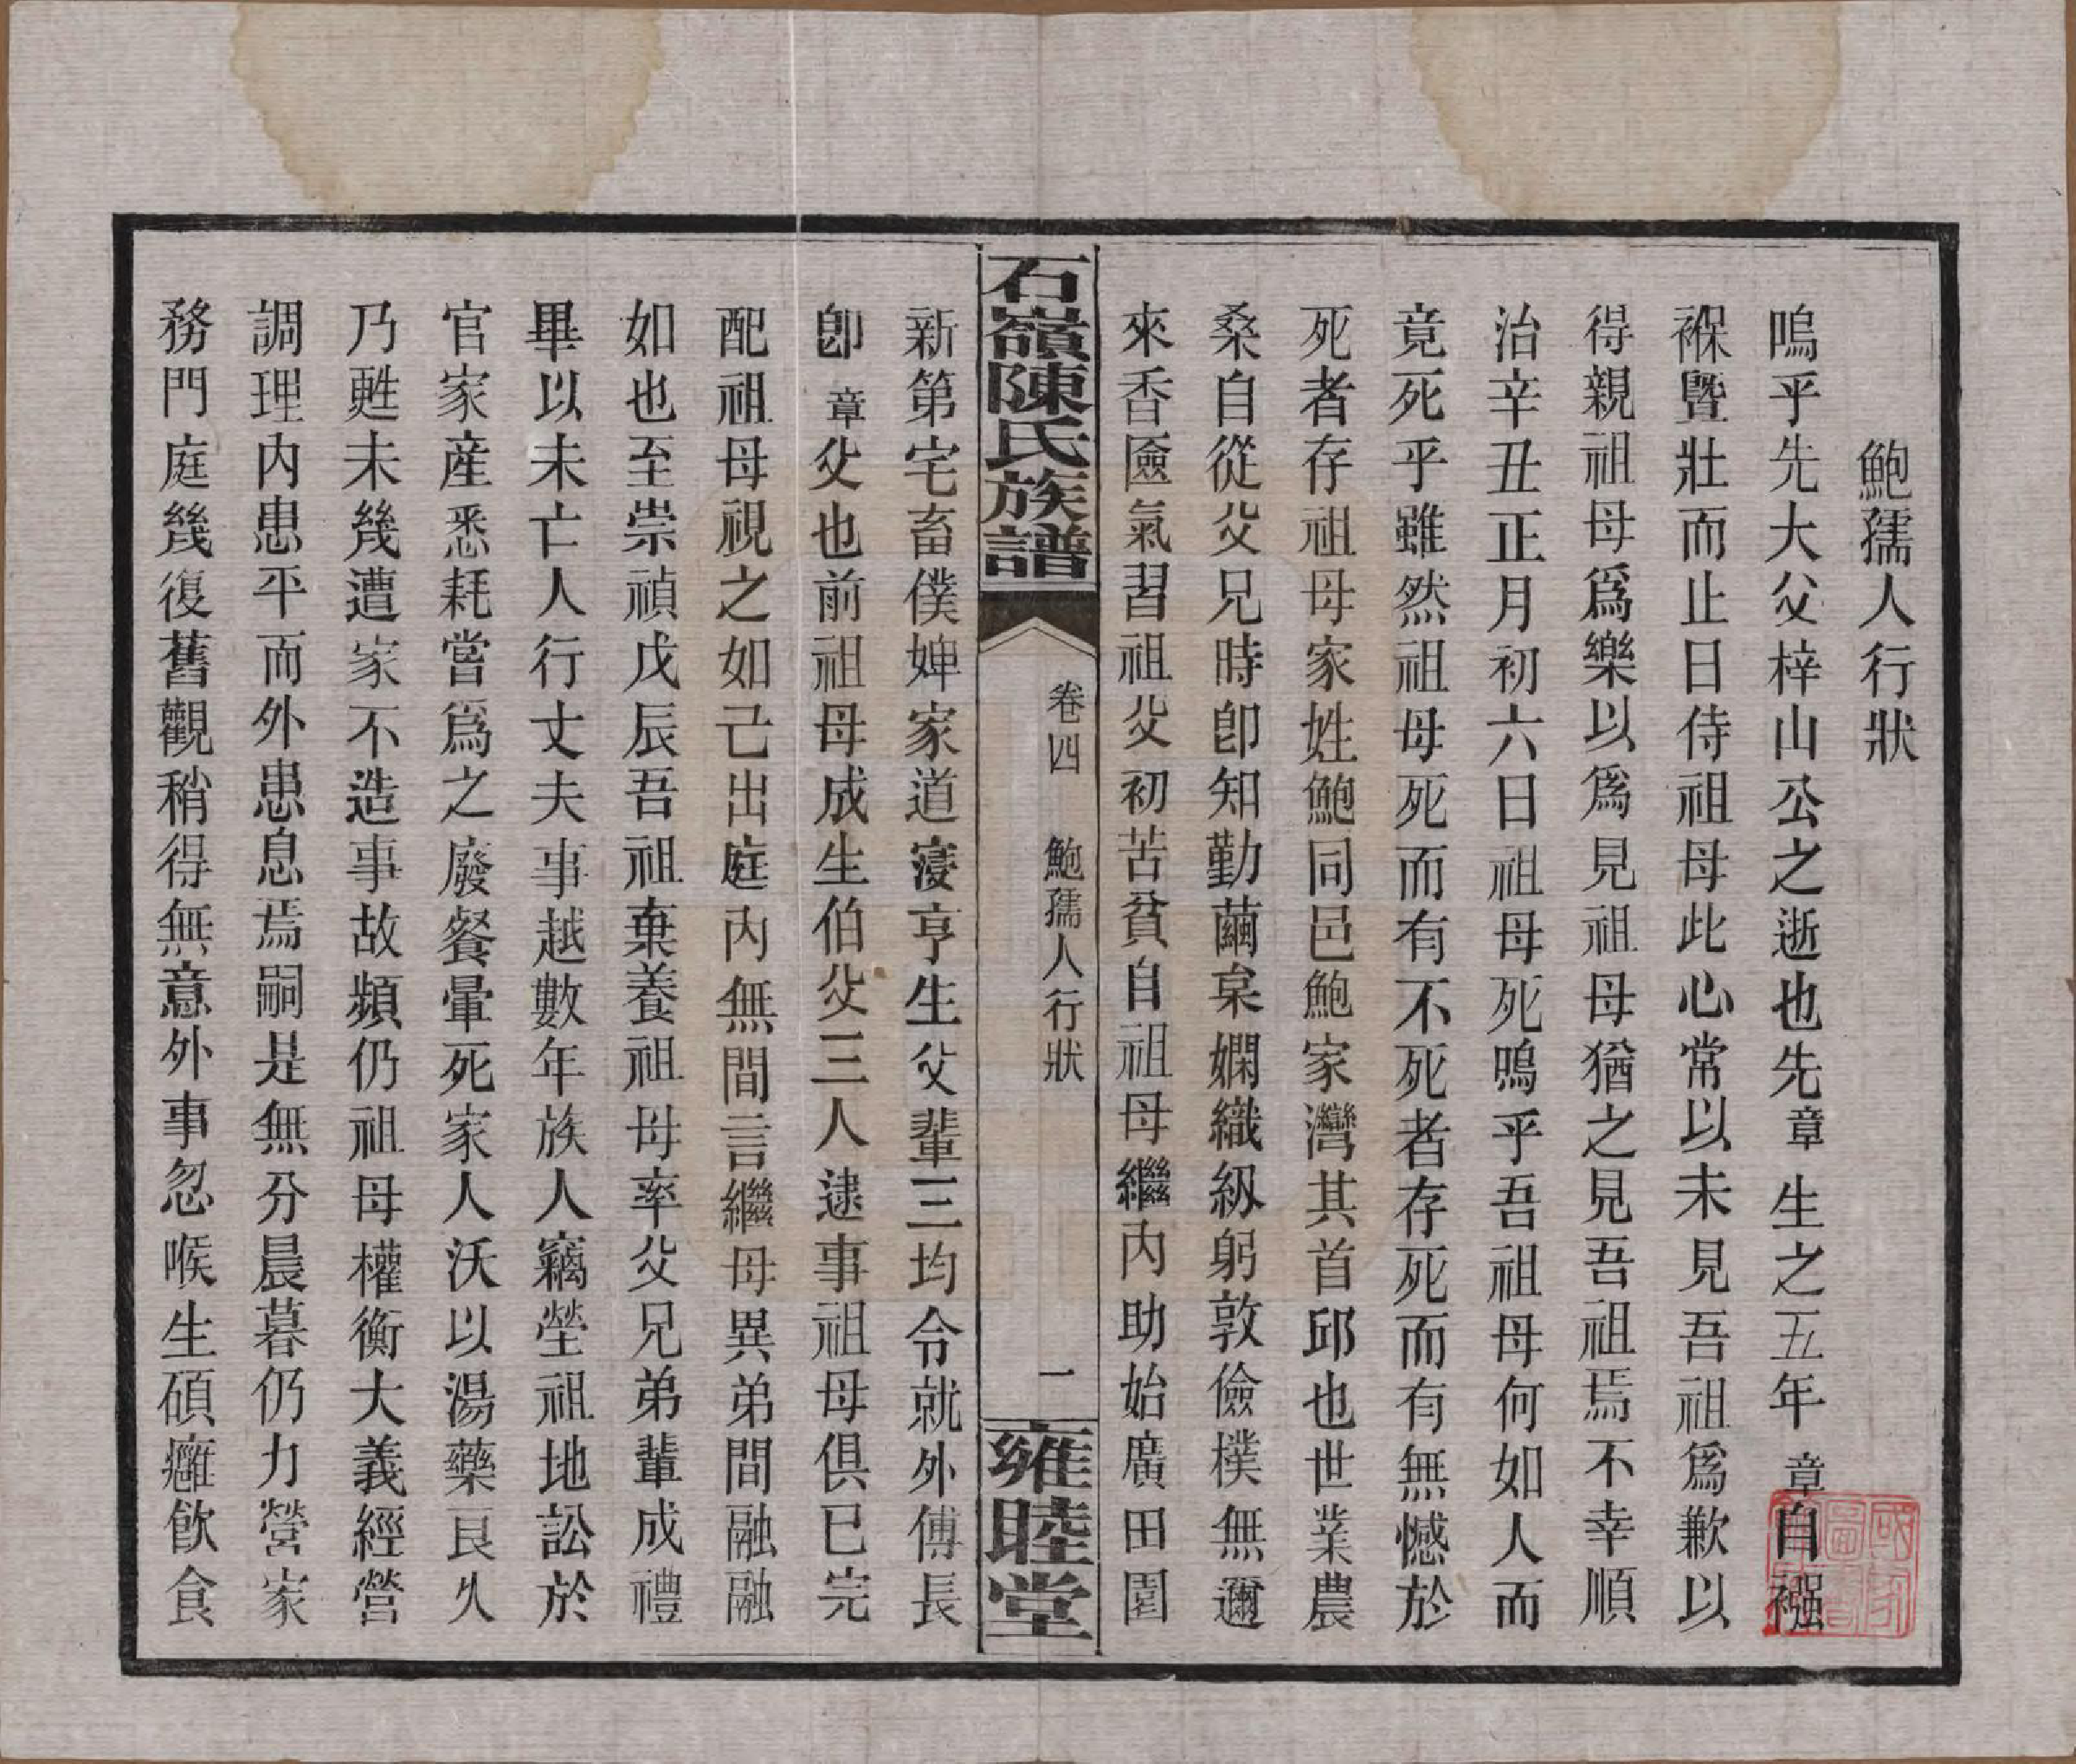 鮑孺人行狀
嗚乎先大父梓山公之逝也先章生之五年章自襁
褓曁壯而止日侍祖母此心常以未見吾祖爲歉以
得親祖母爲樂以爲見祖母猶之見吾祖焉不幸順
治辛丑正月初六日祖母死嗚乎吾祖母何如人而
竟死乎雖然祖母死而有不死者存死而有無憾於
死者存祖母家姓鮑同邑鮑家灣其首邱也世業農
桑自從父兄時卽知勤繭枲嫻織紉躬敦儉樸無邇
來香奩氣習祖父初苦貧自祖母繼內助始廣田園
石嶺陳氏族譜
卷四 鮑孺人行狀
一
雍睦堂
新第宅畜僕婢家道寖亨生父輩三均令就外傅長
卽章父也前祖母成生伯父三人逮事祖母俱已完
配祖母視之如己出庭內無間言繼母異弟間融融
如也至崇禎戊辰吾祖棄養祖母率父兄弟輩成禮
畢以未亡人行丈夫事越數年族人竊塋祖地訟於
官家産悉耗嘗爲之廢餐暈死家人沃以湯藥良久
乃甦未幾遭家不造事故頻仍祖母權衡大義經營
調理內患平而外患息焉嗣是無分晨暮仍力營家
務門庭幾復舊觀稍得無意外事忽喉生碩癰飮食